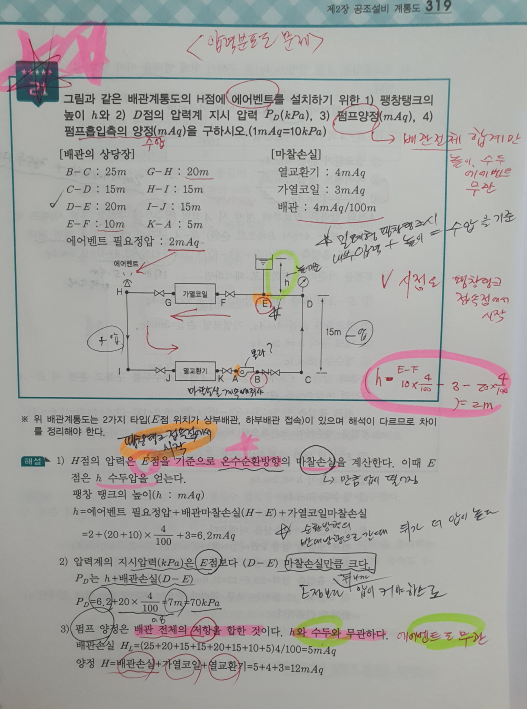 제2장 공조설비 계통도 319
<압력분포도 문제>
21
그림과 같은 배관계통도의 H점에 에어벤트를 설치하기 위한 1) 팽창탱크의
높이 h와 2) D점의 압력계 지시 압력 P_D(kPa), 3) 펌프양정(mAq), 4)
펌프흡입측의 양정(mAq)을 구하시오.(1mAq=10kPa)
수압
→ 배관전체 합계만
높이, 수두
에어벤트
무관
[배관의 상당장]
B-C : 25m G-H : 20m
C-D : 15m H-I : 15m
D-E : 20m I-J : 15m
E-F : 10m K-A : 5m
에어벤트 필요정압 : 2mAq
[마찰손실]
열교환기 : 4mAq
가열코일 : 3mAq
배관 : 4mAq/100m
= 수압을 기준
V 시점은 팽창탱크
접속점에서
시작
에어벤트
H
G
가열코일
F
E
D
h
15m
I
J
열교환기
K
A
B
C
E-F
h = 10×4/100 - 3 - 20×4/100
= 2m
※ 위 배관계통도는 2가지 타입(E 위치가 상부배관, 하부배관 접속)이 있으며 해석이 다르므로 차이
를 정리해야 한다.
팽창탱크 접속점에서
시작
해설 1) H점의 압력은 E점을 기준으로 온수순환방향의 마찰손실을 계산한다. 이때 E
점은 h 수두압을 얻는다.
팽창 탱크의 높이(h : mAq)
h=에어벤트 필요정압+배관마찰손실(H-E)+가열코일마찰손실
=2+(20+10)×4/100+3=6.2mAq
순환방향의
반대방향으로 간때 뒤가 더 압이 높다
2) 압력계의 지시압력(kPa)은 E점보다 (D-E) 마찰손실만큼 크다.
P_D는 h+배관손실(D-E)
P_D=6.2+20×4/100=7m=70kPa
0.8
3) 펌프 양정은 배관 전체의 저항을 합한 것이다. h와 수두와 무관하다.
에어벤트도 무관
배관손실 H_L=(25+20+15+15+20+15+10+5)4/100=5mAq
양정 H=배관손실+가열코일+열교환기=5+4+3=12mAq